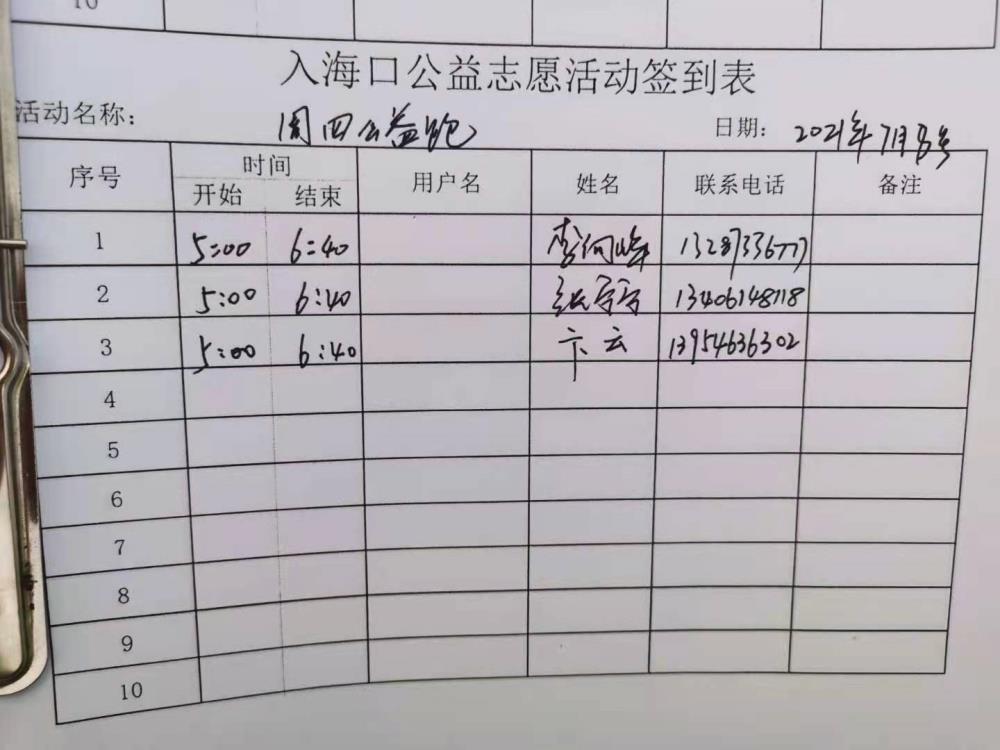 10
入海口公益志愿活动签到表
活动名称： 周四公益跑 日期： 2021年7月8号
序号 时间 用户名 姓名 联系电话 备注
开始 结束
1 5:00 6:40
2 5:00 6:40 张宁宁 13406148118
3 5:00 6:40 卞云 13954636302
4
5
6
7
8
9
10